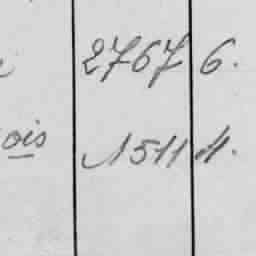 2767 6.
ois 1511 4.